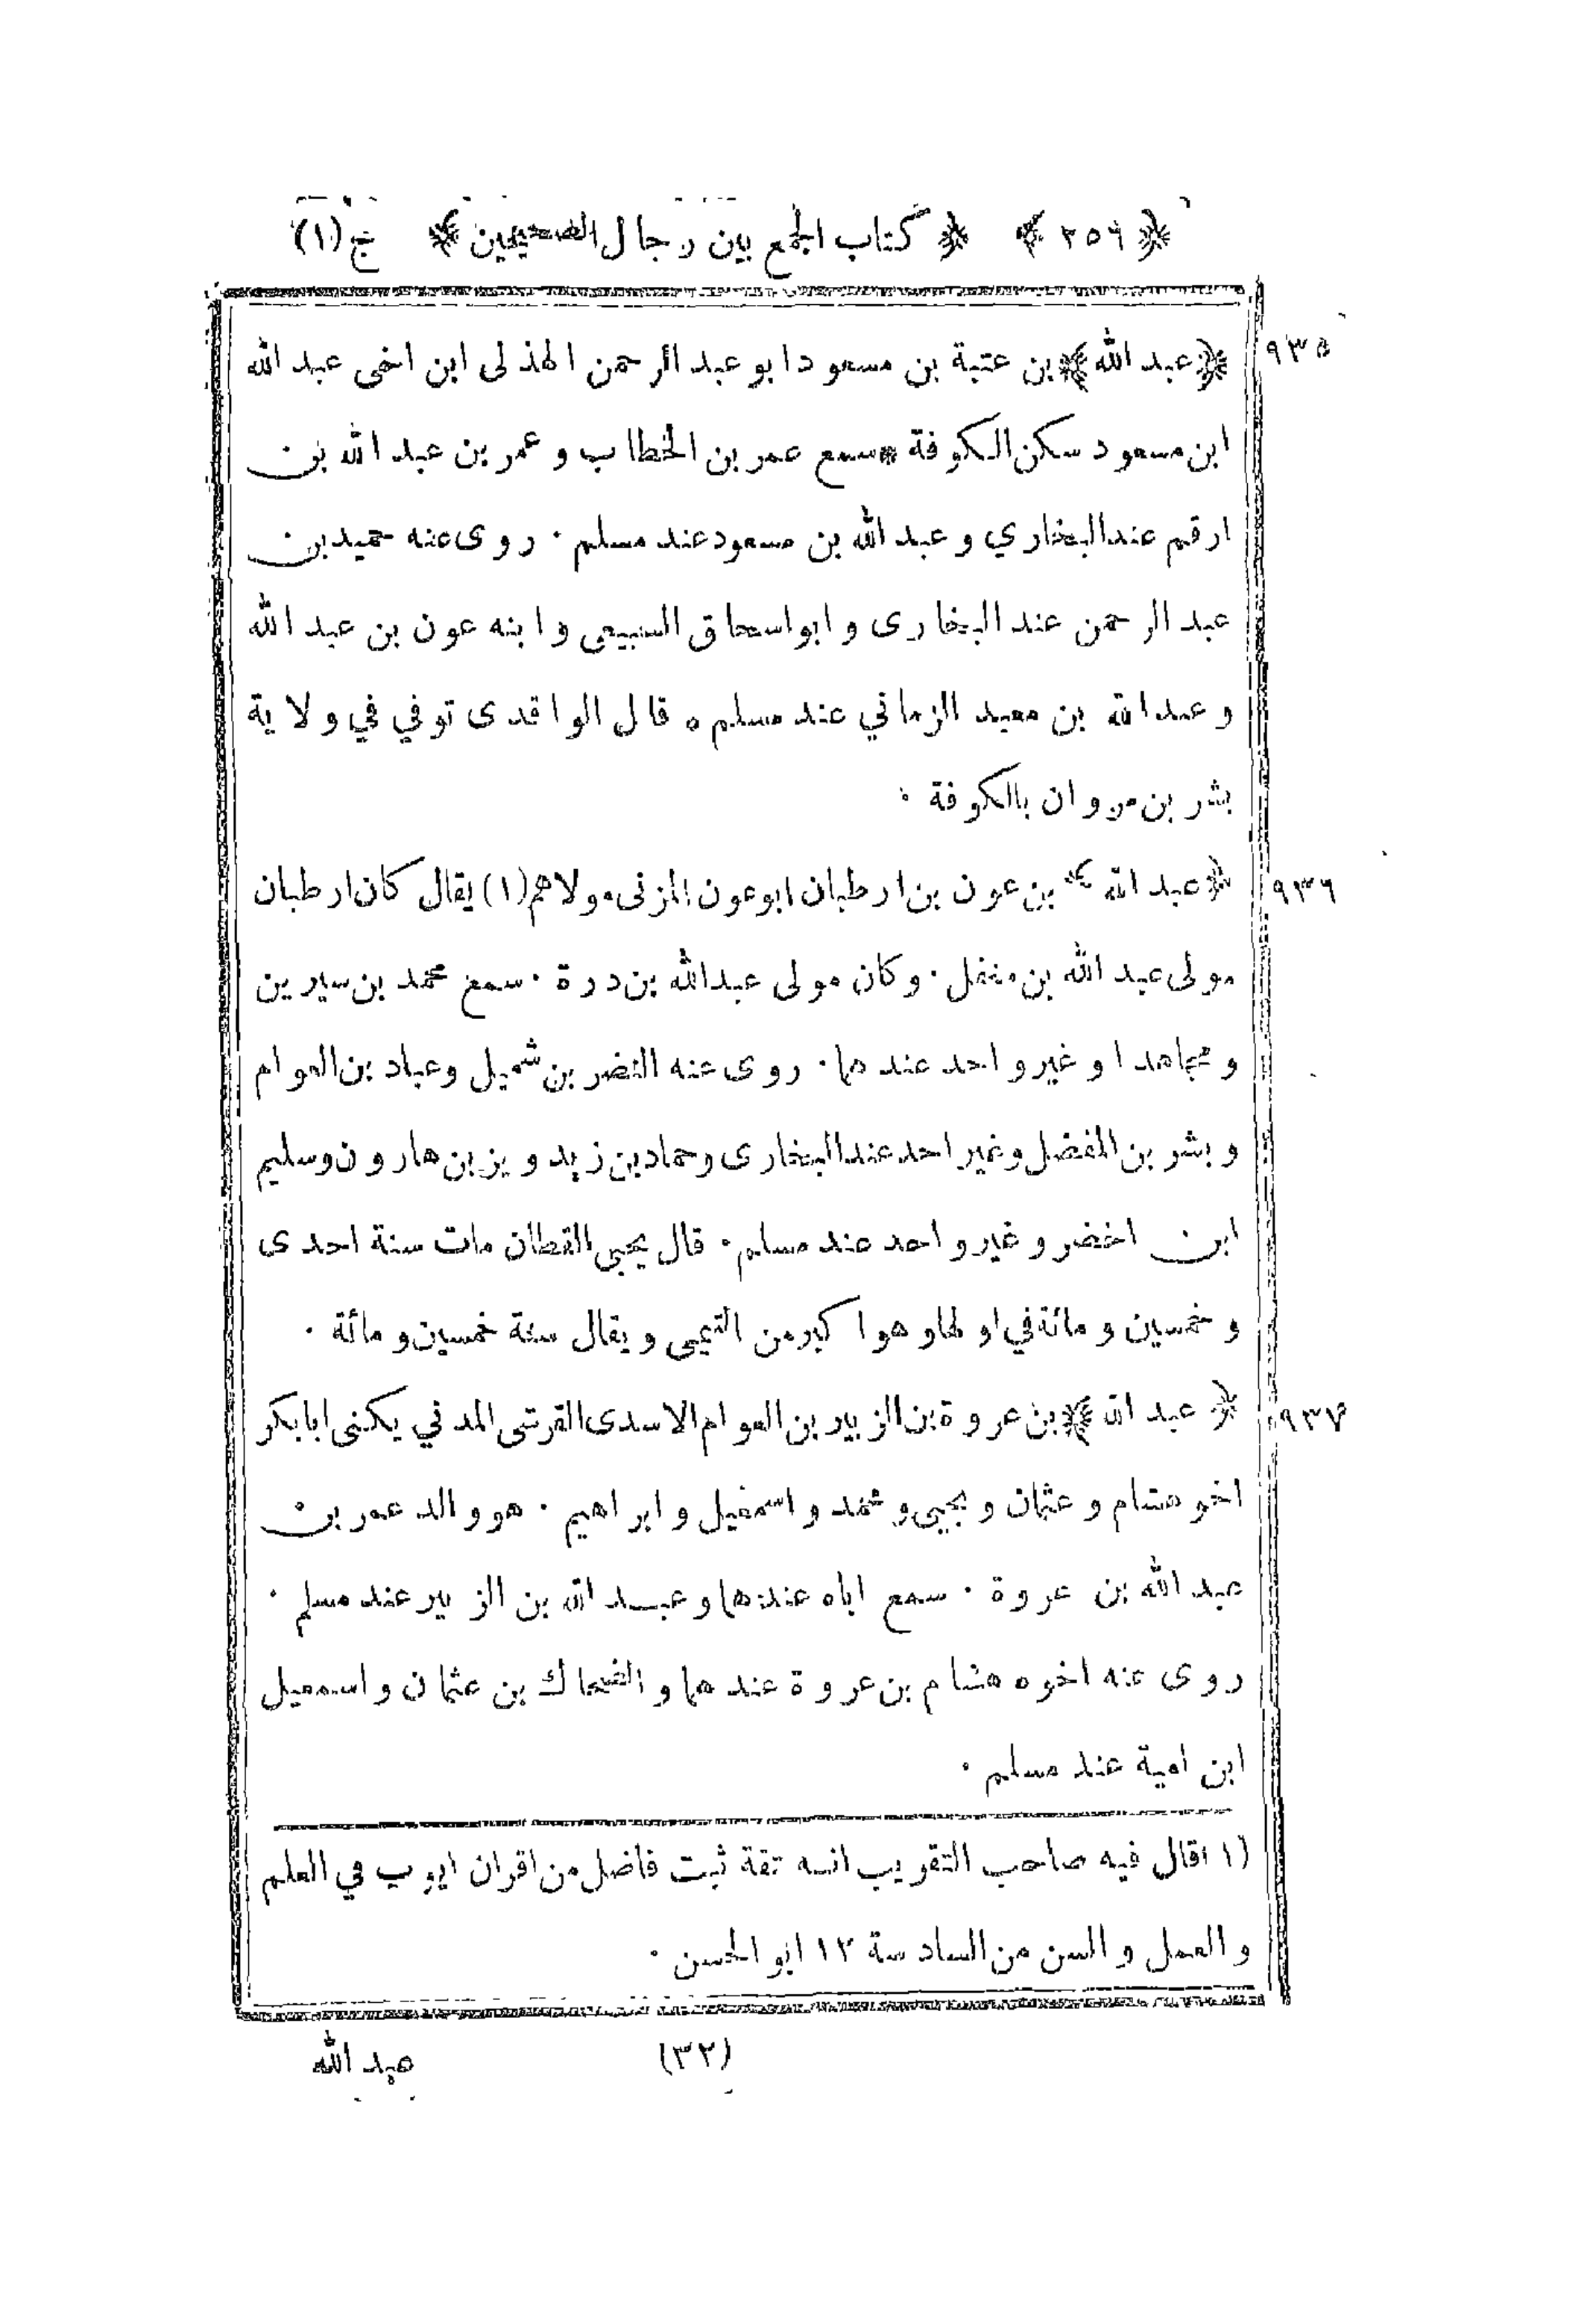 ﴿٢٥٦﴾ ﴿كتاب الجمع بين رجال الصحيحين﴾ ج(١)
٩٣٥ ﴿عبد الله﴾ بن عتبة بن مسعود ابو عبد الرحمن الهذلى ابن اخى عبد الله
ابن مسعود سكن الكوفة * سمع عمر بن الخطاب و عمر بن عبد الله بن
ارقم عند البخاري و عبد الله بن مسعود عند مسلم ٠ روى عنه حميد بن
عبد الرحمن عند البخارى و ابو اسحاق السبيعى و ابنه عون بن عبد الله
و عبد الله بن معبد الزماني عند مسلم ٥ قال الواقدى توفي في ولاية
بشر بن مروان بالكوفة ٠
٩٣٦ ﴿عبد الله﴾ بن عون بن ارطبان ابو عون المزنى مولاهم (١) يقال كان ارطبان
مولى عبد الله بن مغفل ٠ و كان مولى عبد الله بن درة ٠ سمع محمد بن سيرين
و مجاهدا و غير واحد عندهما ٠ روى عنه النضر بن شميل و عباد بن العوام
و بشر بن المفضل و غير احد عند البخارى و حماد بن زيد و يز بن هارون و سليم
ابن اخضر و غير واحد عند مسلم ٠ قال يحيى القطان مات سنة احدى
و خمسين و مائة في اولها و هو اكبر من التيمى و يقال سنة خمسين و مائة ٠
٩٣٧ ﴿عبد الله﴾ بن عروة بن الزبير بن العوام الاسدى القرشى المدني يكنى ابا بكر
اخو هشام و عثمان و يحيى و محمد و اسمعيل و ابراهيم ٠ هو والد عمر بن
عبد الله بن عروة ٠ سمع اباه عندهما و عبد الله بن الزبير عند مسلم ٠
روى عنه اخوه هشام بن عروة عندهما و الضحاك بن عثمان و اسمعيل
ابن امية عند مسلم ٠
(١) قال فيه صاحب التقريب انه ثقة ثبت فاضل من اقران ايوب في العلم
و العمل و السن من السادسة ١٢ ابو الحسن ٠
(٣٢) عبد الله